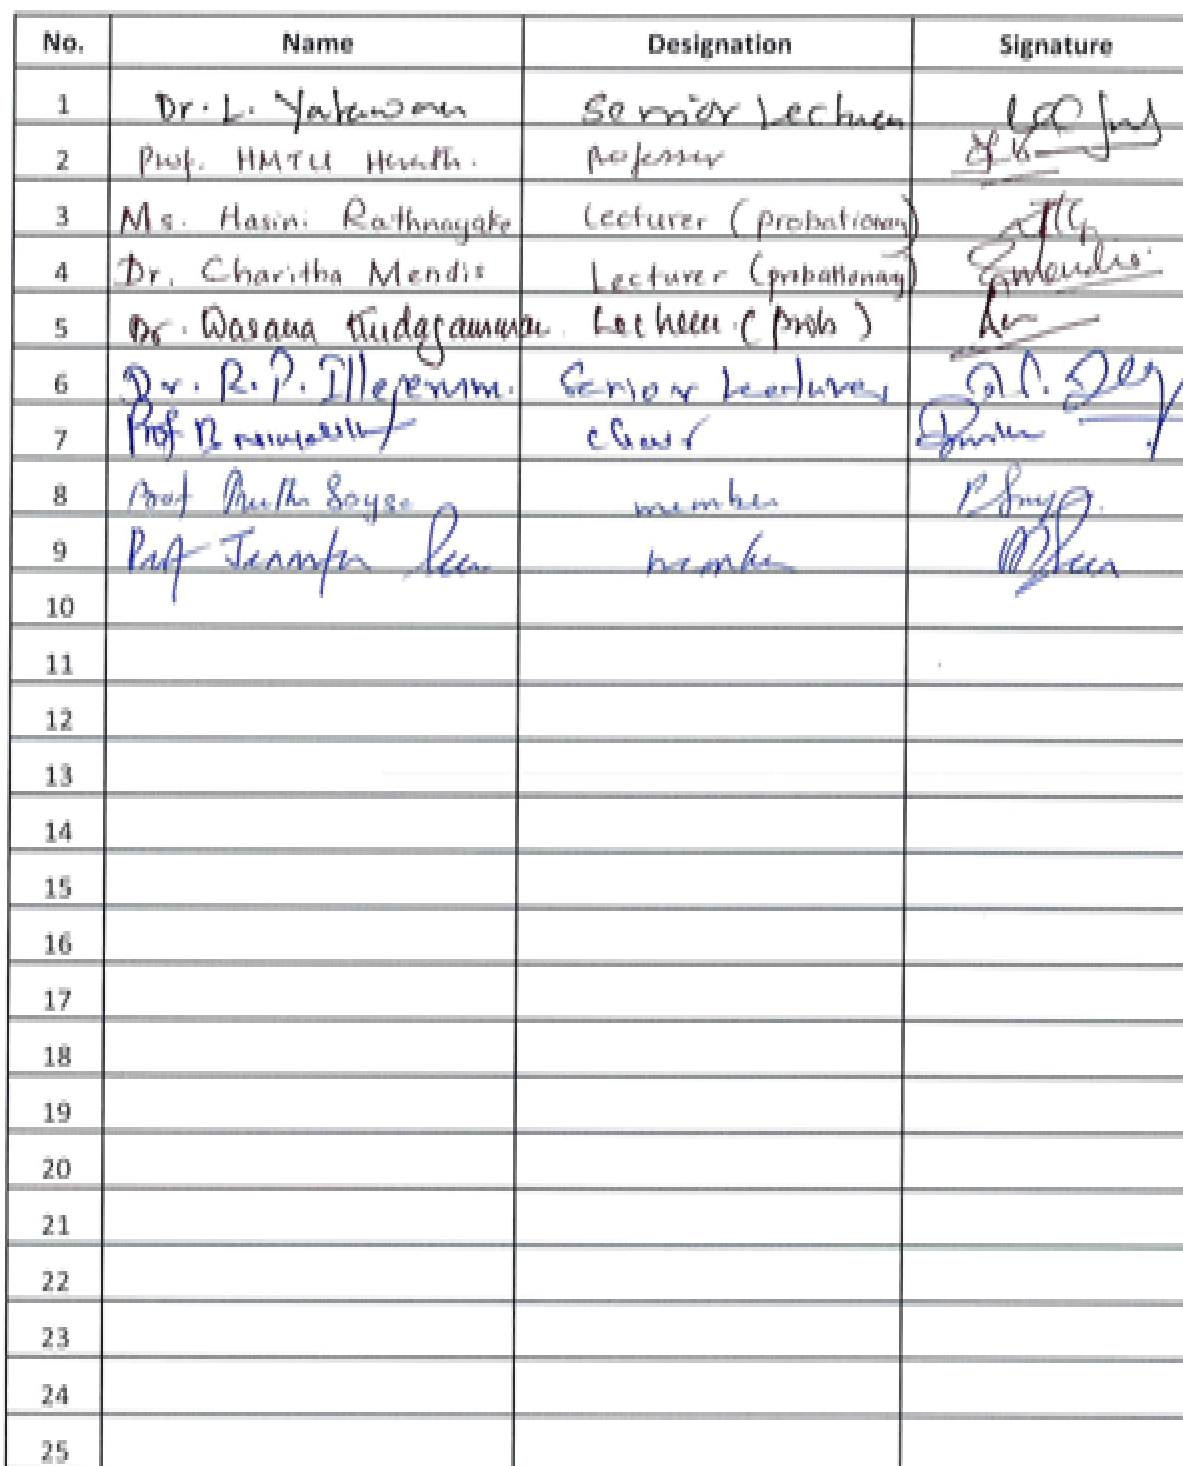 No. Name Designation Signature
1 Dr. L. Senior Lecturer
2 Prof. HMTU Herath. Professor
3 Ms. Hasini Rathnayake Lecturer (probationary)
4 Dr. Charitha Mendis Lecturer (probationary)
5 Dr. Wasana Lecturer (prob)
6 Dr. R. P. Senior Lecturer
7 Prof chair
8 Prof Soysa member
9 Prof Jennifer member
10
11
12
13
14
15
16
17
18
19
20
21
22
23
24
25